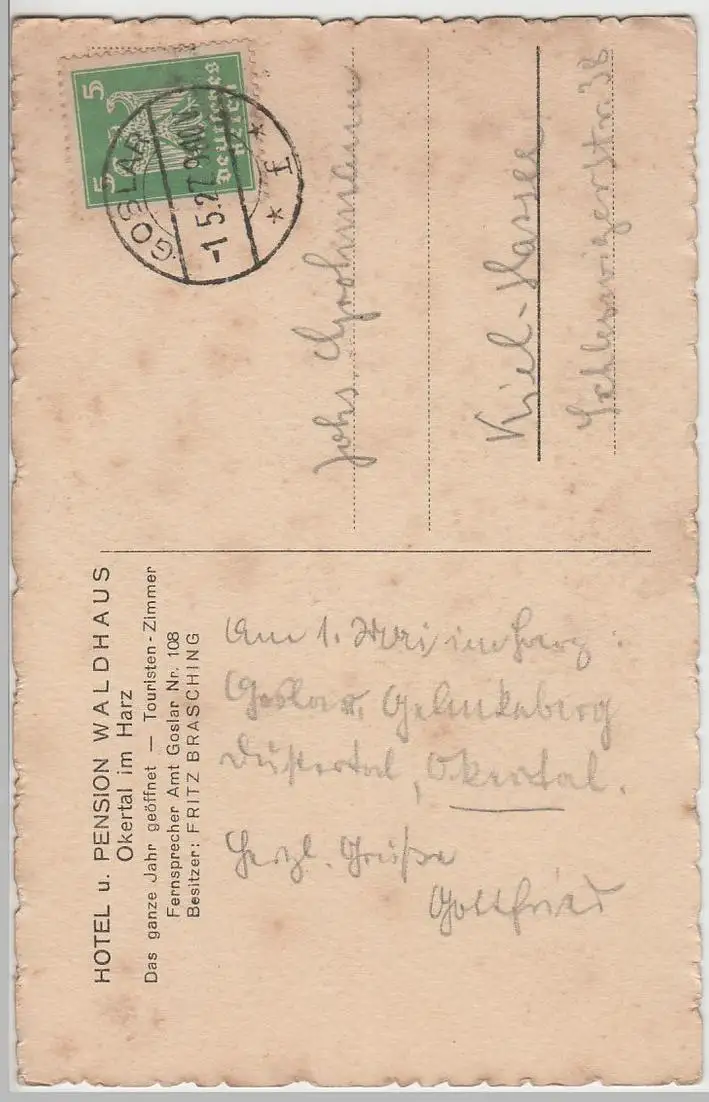 HOTEL u. PENSION WALDHAUS
Okertal im Harz
Das ganze Jahr geöffnet — Touristen-Zimmer
Fernsprecher Amt Goslar Nr. 108
Besitzer: FRITZ BRASCHING
Am 1. Mai im Harz:
Goslar, Gelmkeberg
Okertal.
Herzl. Grüße
Gottfried
5 5
Deutsches Reich
GOSLAR
-1.5.27.9-10V
* f *
Johs.
Kiel-Hassee
Schleswigerstr. 38